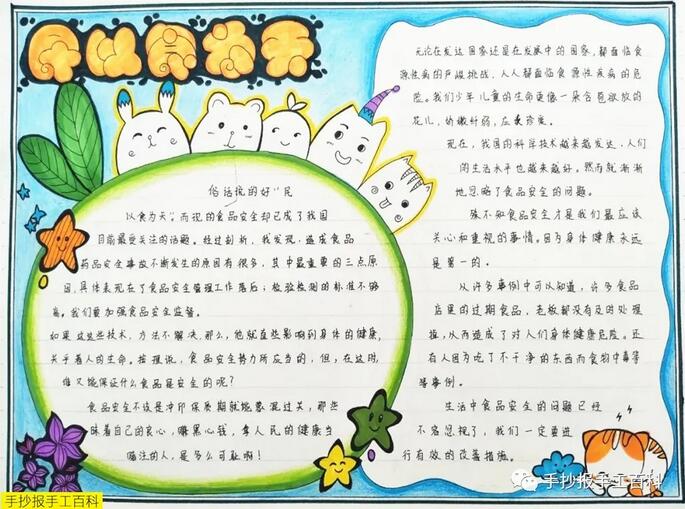 民以食为天
俗话说的好“民
以食为天”而现的食品安全却已成了我国
目前最受关注的话题。经过剖析，我发现，造成食品
药品安全事故不断发生的原因有很多，其中最重要的三点原
因，具体表现在了食品安全管理工作落后；检验检测的标准不够
高。我们要加强食品安全监督。
如果这些技术，方法不解决，那么，他就直些影响到身体的健康，
关乎着人的生命。按理说，食品安全势力所应当的，但，在这时，
谁又能保证什么食品是安全的呢？
食品安全不该是冲印保质期就能蒙混过关，那些
昧着自己的良心，赚黑心钱，拿人民的健康当
赌注的人，是多么可耻啊！
无论在发达国家还是在发展中的国家，都面临食
源性病的严峻挑战，人人都面临食源性疾病的危
险。我们少年儿童的生命更像一朵含苞欲放的
花儿，娇嫩纤弱，应爱珍爱。
现在，我国的科学技术越来越发达，人们
的生活水平也越来越好。然而就渐渐
地忽略了食品安全的问题。
殊不知食品安全才是我们最应该
关心和重视的事情。因为身体健康永远
是第一的。
从许多事例中可以知道，许多食品
店里的过期食品，老板都没有及时处理
掉，从而造成了对人们身体健康危险。还
有人因为吃了不干净的东西而食物中毒等
等事例。
生活中食品安全的问题已经
不容忽视了，我们一定要进
行有效的改善措施。
手抄报手工百科
手抄报手工百科